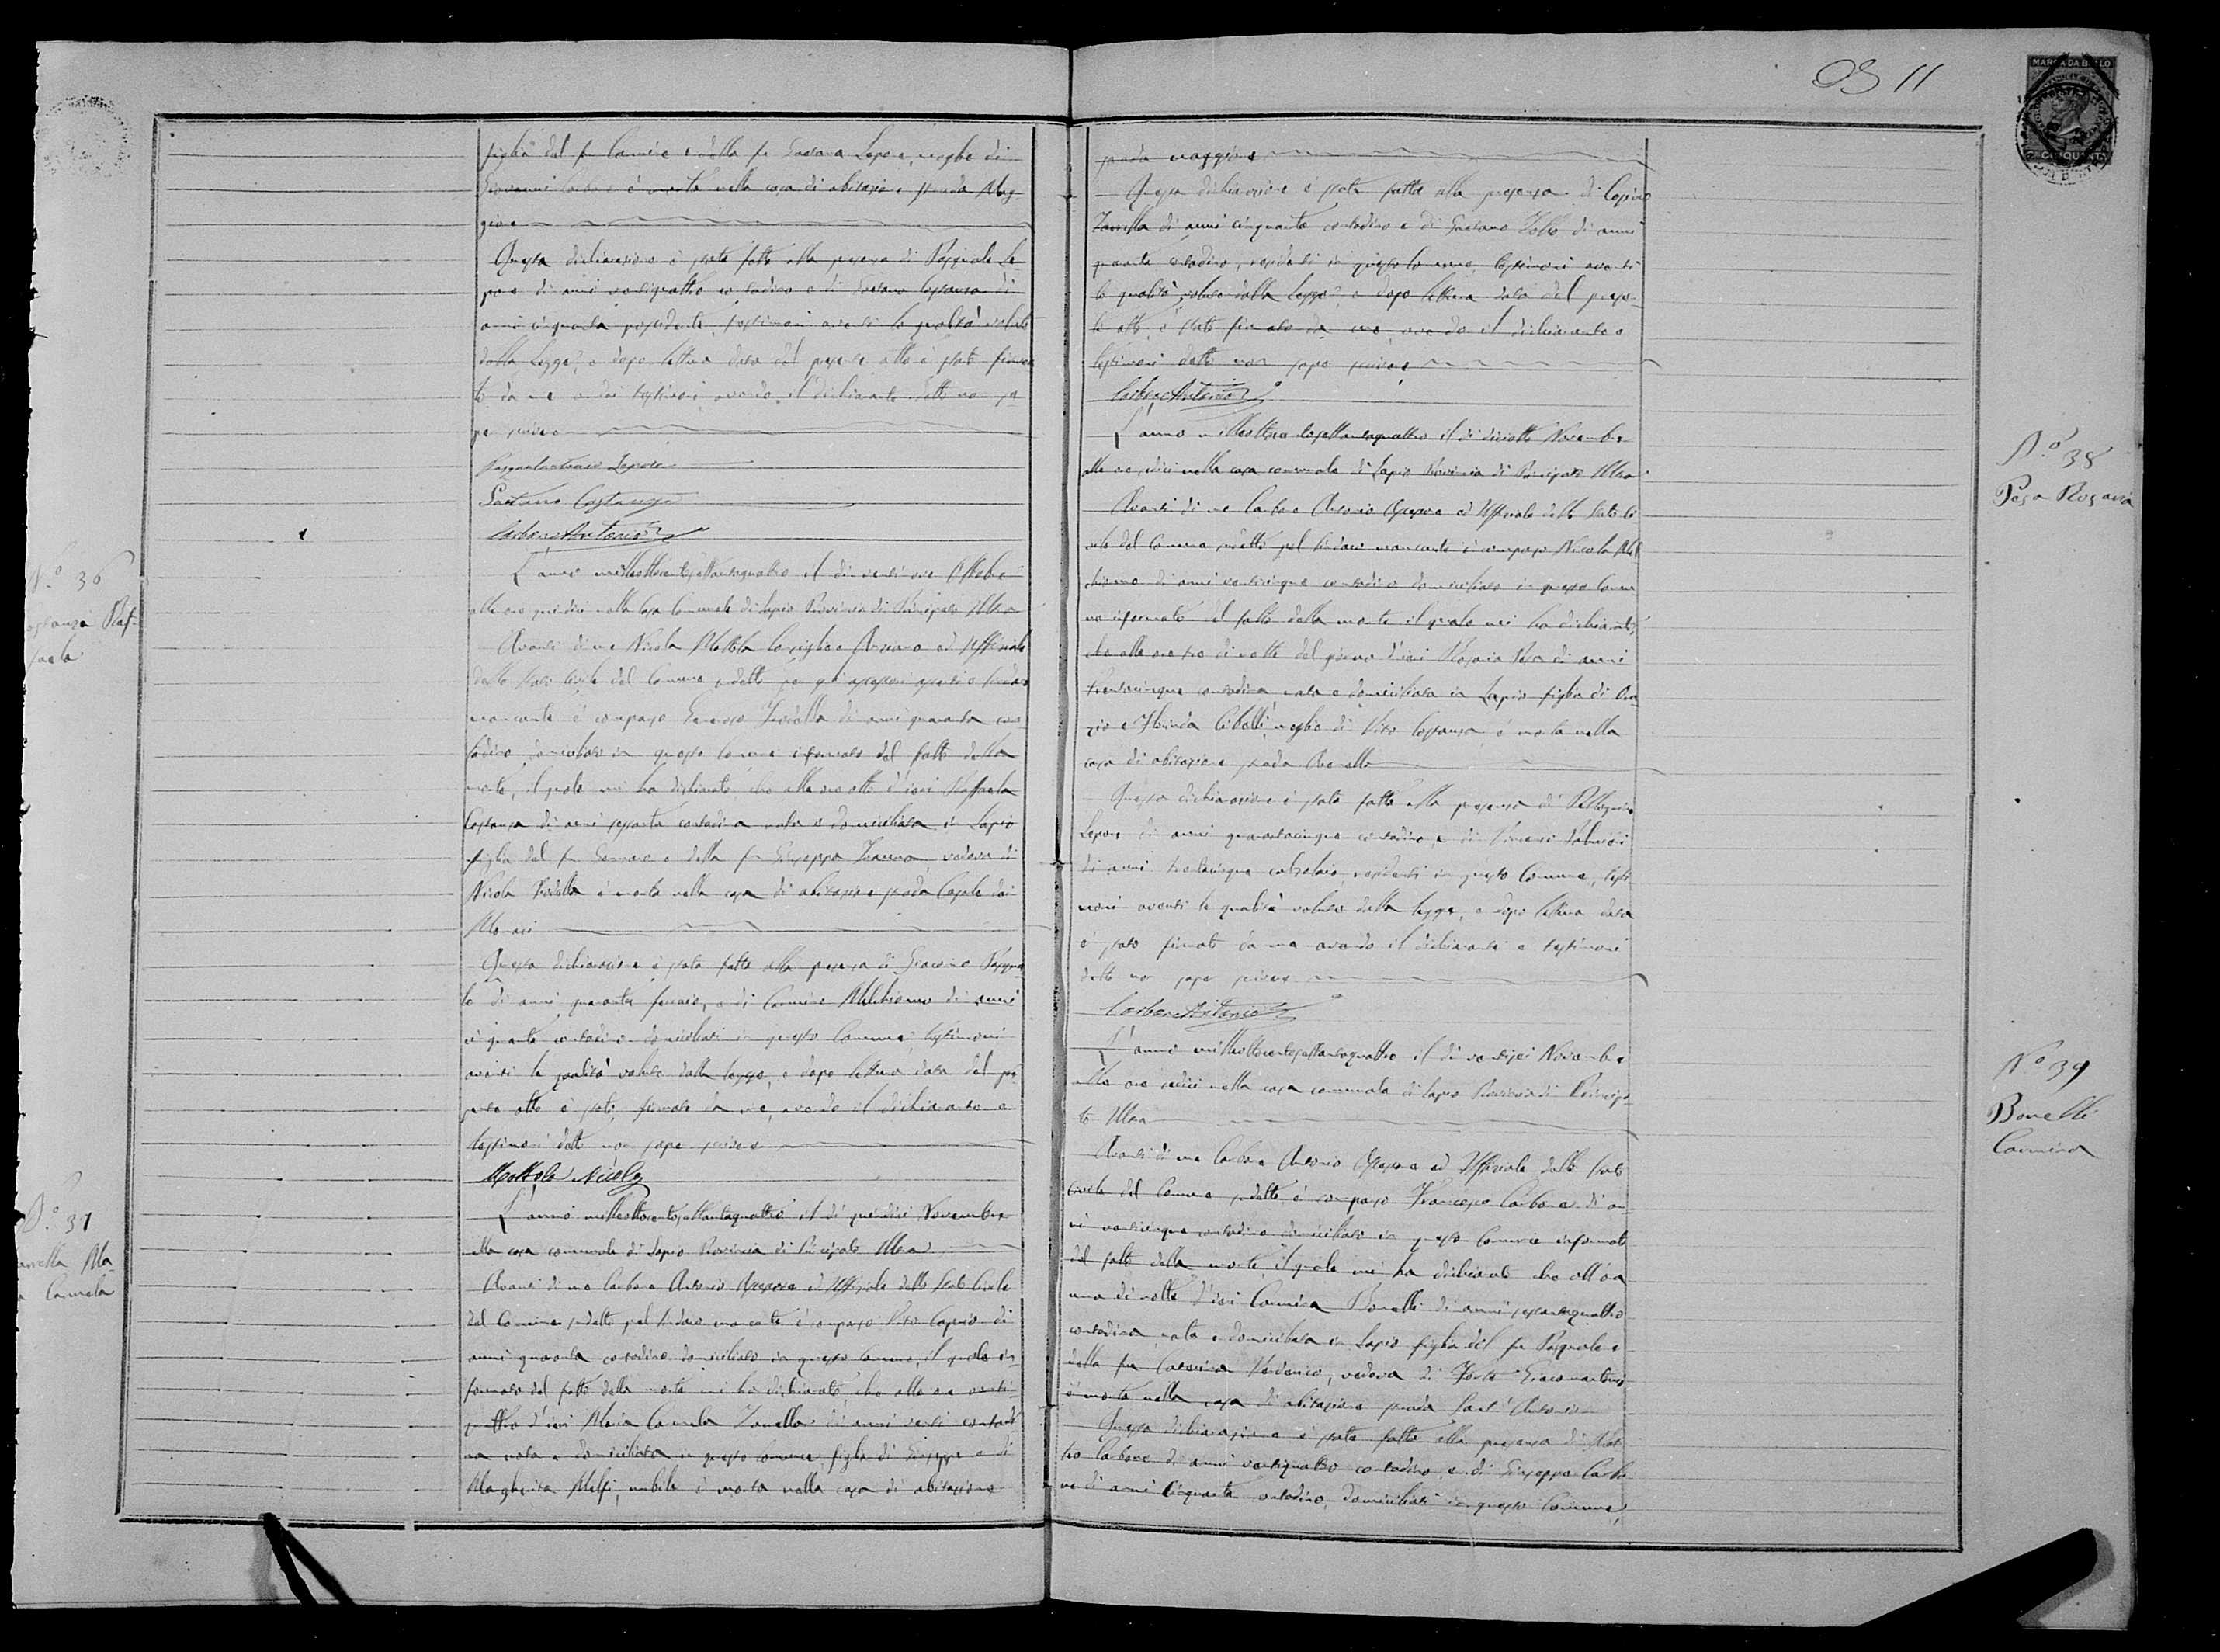 figlia del fu Carmine e della fu Gaetana Lepore, moglie di
Giovanni Carbone è morta nella casa di abitazione strada Mag
giore
Questa dichiarazione è stata fatta alla presenza di Pasquale Le
pore di anni ventiquattro contadino e di Gaetano Costanza di
anni cinquanta possidente, testimoni aventi le qualità volute
dalla Legge, e dopo lettura data del presente atto è stato firma
to da me e dai testimoni avendo il dichiarante detto non sa
per scrivere
Lepore
Gaetano Costanza
Carbone Antonio
N.o 36
ostanza Raf-
faela
L'anno milleottocentosettantaquattro il dì ventinove Ottobre
alle ore quindici nella Casa Comunale di Lapio Provincia di Principato Ultra
Avanti di me Nicola Mottola Consigliere Anziano ed Uffiziale
dello Stato Civile del Comune sudetto Sindaco
mancante è comparso Generoso Trodella di anni quaranta con
tadino domiciliato in questo Comune informato del fatto della
morte, il quale mi ha dichiarato che alle ore otto d'ieri Raffaela
Costanza di anni sessanta contadina nata e domiciliata in Lapio
figlia del fu Gennaro e della fu Giuseppa vedova di
Nicola Trodella è morta nella casa di abitazione strada Casale dei
Monaci
Questa dichiarazione è stata fatta alla presenza di Giacomo Pasqua
le di anni quaranta ferraio, e di Carmine Melchionno di anni
cinquanta contadino domiciliati in questo Comune, testimoni
aventi le qualità volute dalla legge, e dopo lettura data del pre
sente atto è stato firmato da me, avendo il dichiarante e
testimoni detto non saper scrivere
Mottola Nicola
N.o 37
arella Ma-
a Carmela
L'anno milleottocentosettantaquattro il dì quindici Novembre
nella casa comunale di Lapio Provincia di Principato Ultra
Avanti di me Carbone Antonio Assessore ed Uffiziale dello Stato Civile
del Comune sudetto pel Sindaco mancante è comparso Vito Caprio di
anni quaranta contadino domiciliato in questo Comune, il quale in-
formato del fatto della morte mi ha dichiarato, che alle ore venti-
quattro d'ieri Maria Carmela Zarrella di anni venti contadi
na nata e domiciliata in questo comune, figlia di Giuseppe e di
Margherita Melfi, nubile è morta nella casa di abitazione
11
MARCA DA BOLLO
strada maggiore
Questa dichiarazione è stata fatta alla presenza di
Zarrella di anni cinquanta contadino e di Gaetano Iollo di anni
quaranta contadino, residenti in questo Comune, testimoni aventi
le qualità volute dalla Legge, e dopo lettura data del presen-
te atto, è stato firmato da me, avendo il dichiarante e
testimoni detto non saper scrivere
Carbone Antonio
N.o 38
Pesa Rosaria
L'anno milleottocentosettantaquattro il dì diciotto Novembre
alle ore sedici nella casa comunale di Lapio Provincia di Principato Ultra
Avanti di me Carbone Antonio Assessore ed Uffiziale dello Stato Ci
vile del Comune sudetto pel Sindaco mancante è comparso Nicola Mel
chionno di anni venticinque contadino domiciliato in questo Comu
ne informato del fatto della morte il quale mi ha dichiarato,
che alle ore tre di notte del giorno d'ieri Rosaria Pesa di anni
trentacinque contadina nata e domiciliata in Lapio figlia di Ora
zio e Florinda Cibelli, moglie di Vito Costanza, è morta nella
casa di abitazione strada
Questa dichiarazione è stata fatta alla presenza di Pellegrino
Lepore di anni quarantacinque contadino, e di
di anni trentacinque calzolaio, residenti in questo Comune, testi
moni aventi le qualità volute dalla legge, e dopo lettura data
è stato firmato da me avendo il dichiarante e testimoni
detto non saper scrivere
Carbone Antonio
N.o 39
Bonelli
Carmina
L'anno milleottocentosettantaquattro il dì ventisei Novembre
alle ore sedici nella casa comunale di Lapio Provincia di Principa
to Ultra
Avanti di me Carbone Antonio Assessore ed Uffiziale dello Stato
Civile del Comune sudetto è comparso Francesco Carbone di an
ni venticinque contadino domiciliato in questo Comune informato
del fatto della morte, il quale mi ha dichiarato che all'ora
una di notte d'ieri Carmina Bonelli di anni sessantaquattro
contadina nata e domiciliata in Lapio figlia del fu Pasquale e
della fu Caterina vedova di Giacomantonio
è morta nella casa di abitazione strada Sant'Antonio
Questa dichiarazione è stata fatta alla presenza di
Carbone di anni ventiquattro contadino, e di Giuseppe Carbo
ne di anni cinquanta contadino, domiciliati in questo Comune,